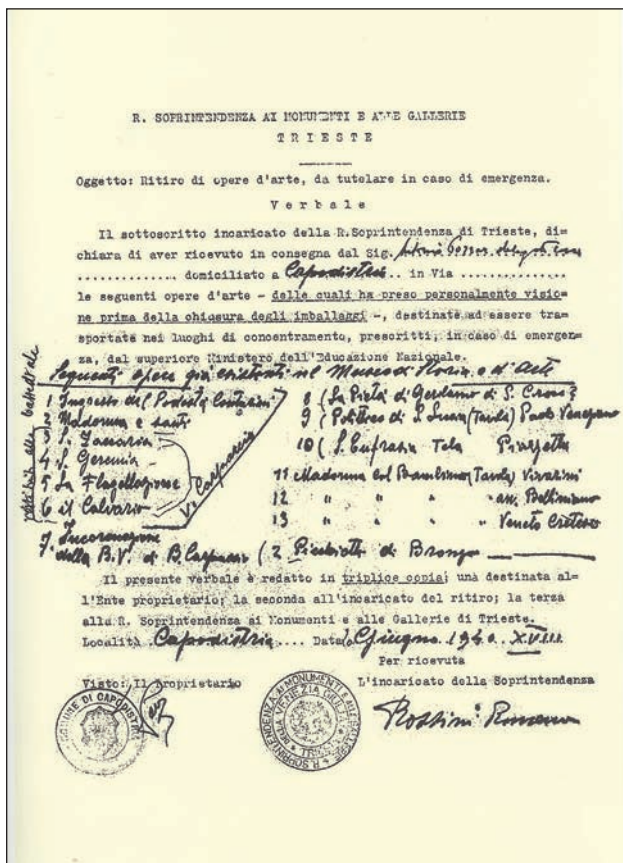 R. SOPRINTENDENZA AI MONUMENTI E ALLE GALLERIE
TRIESTE
Oggetto: Ritiro di opere d'arte, da tutelare in caso di emergenza.
Verbale
Il sottoscritto incaricato della R.Soprintendenza di Trieste, di-
chiara di aver ricevuto in consegna dal Sig.
.............. domiciliato a Capodistria .. in Via ..............
le seguenti opere d'arte - delle quali ha preso personalmente visio-
ne prima della chiusura degli imballaggi -, destinate ad essere tra-
sportate nei luoghi di concentramento, prescritti, in caso di emergen-
za, dal superiore Ministero dell'Educazione Nazionale.
Seguenti opere già esistenti nel Museo di Storia e d'Arte
1 Ingresso del Podestà Contarini
2 Madonna e santi
3 S. Zaccaria
4 S. Geremia
5 La Flagellazione
6 il Calvario
V. Carpaccio
7 Incoronazione
della B.V. di B. Carpaccio
alla Cattedrale
8 (La Pietà di Gerolamo di S. Croce
9 (Polittico di S. Lucia (Tavola) Paolo Veneziano
10 (S. Eufrasia Tela Piazzetta
11 Madonna col Bambino (Tavola) Vivarini
12 " " " " an. Belliniano
13 " " " " Veneto Cretese
( 2 Picchiotti di Bronzo
Il presente verbale è redatto in triplice copia; una destinata al-
l'Ente proprietario; la seconda all'incaricato del ritiro; la terza
alla R. Soprintendenza ai Monumenti e alle Gallerie di Trieste.
Località Capodistria .... Data Giugno 1940. XVIII
Per ricevuta
Visto: Il Proprietario L'incaricato della Soprintendenza
COMUNE DI CAPODISTRIA
R. SOPRINTENDENZA AI MONUMENTI E ALLE GALLERIE DELLA VENEZIA GIULIA
Rossini Romano